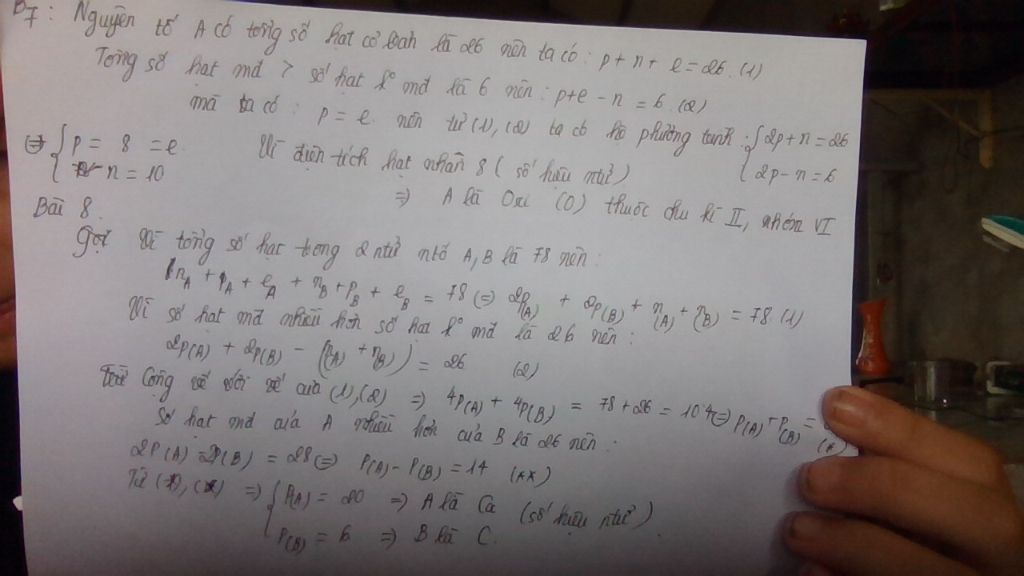 B7: Nguyên tố A có tổng số hạt cơ bản là 26 nên ta có: p + n + e = 26 (1)
Tổng số hạt mđ > số hạt k° mđ là 6 nên: p+e-n = 6 (2)
mà ta có: p = e nên từ (1), (2) ta có hệ phương trình: { 2p+n=26
2p-n=6
(=) { p = 8 = e Vì điện tích hạt nhân 8 (số hiệu ntử)
n = 10
=> A là Oxi (O) thuộc chu kì II, nhóm VI
Bài 8.
Gọi Vì tổng số hạt trong 2 ntử ntố A, B là 78 nên:
nA + pA + eA + nB + pB + eB = 78 (=) 2p(A) + 2p(B) + n(A) + n(B) = 78 (1)
Vì số hạt mđ nhiều hơn số hạt k° mđ là 26 nên:
2p(A) + 2p(B) - (n(A) + n(B)) = 26 (2)
Cộng vế với vế của (1), (2) => 4p(A) + 4p(B) = 78+26 = 104 (=) p(A) + p(B) =
(*)
Số hạt mđ của A nhiều hơn của B là 26 nên:
2p(A) - 2p(B) = 28 (=) p(A) - p(B) = 14 (**)
Từ (*), (**) => { p(A) = 20 => A là Ca (số hiệu ntử)
p(B) = 6 => B là C.